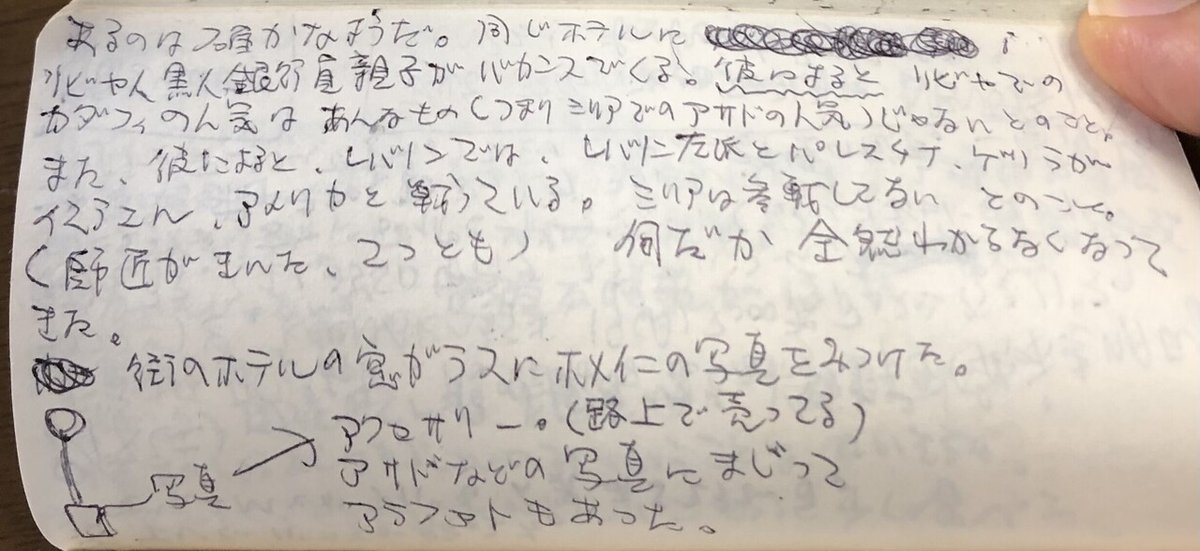 あるのは石屋かなようだ。同じホテルに
リビヤ人黒人銀行員親子がバカンスでくる。彼によると リビヤでの
カダフィの人気は あんなもの(つまりシリアでのアサドの人気)じゃないとのこと。
また、彼によると、レバノンでは、レバノン左派とパレスチナ、ゲリラが
イスラエル、アメリカと戦っている。シリアは参戦してない とのこと。
(師匠がきいた、2つとも) 何だか 全然わからなくなって
きた。
街のホテルの窓ガラスにホメイニの写真をみつけた。
アクセサリー。(路上で売ってる)
写真 アサドなどの写真にまじって
アラファトもあった。